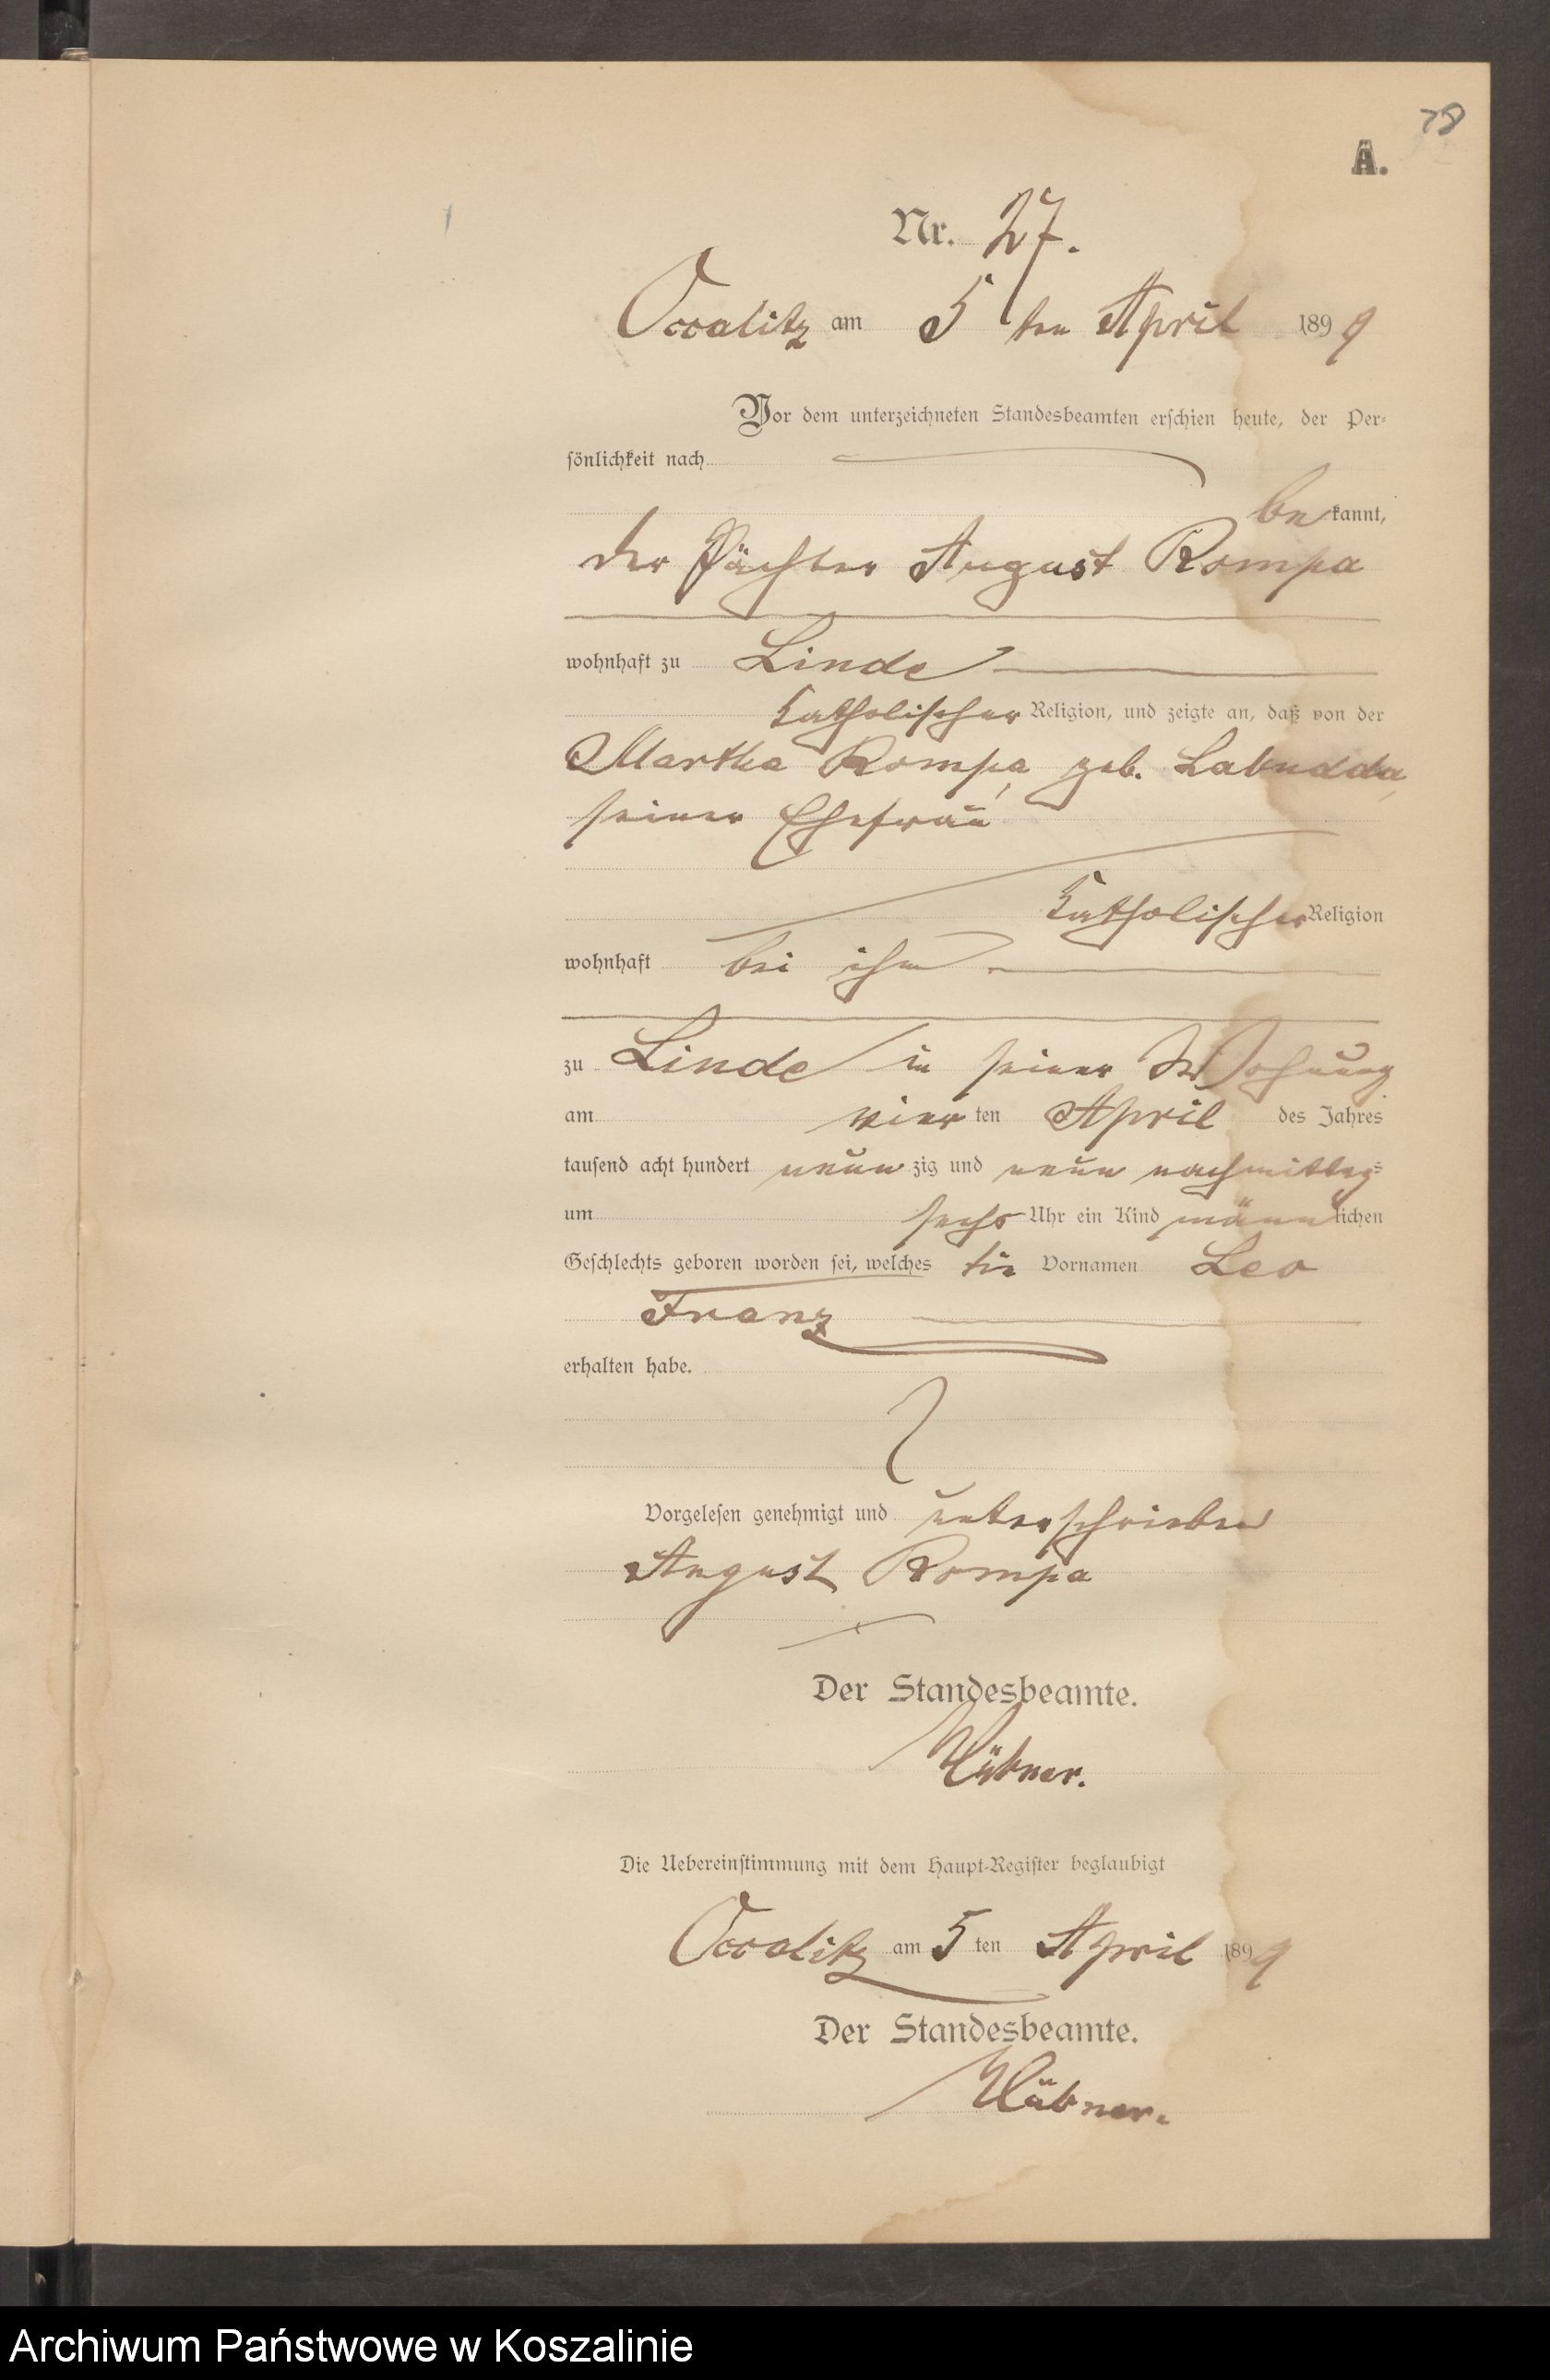 78
A.
Nr. 27.
Occalitz am 5 ten April 1899
Vor dem unterzeichneten Standesbeamten erschien heute, der Per-
sönlichkeit nach
be kannt,
der Pächter August Rompa
wohnhaft zu Linde
katholischer Religion, und zeigte an, daß von der
Martha Rompa, geb. Labudda,
seiner Ehefrau
katholischer Religion
wohnhaft bei ihm
zu Linde in seiner Wohnung
am vier ten April des Jahres
tausend acht hundert neun zig und neun nachmittag-
um sechs Uhr ein Kind männ lichen
Geschlechts geboren worden sei, welches die Vornamen Leo
Franz
erhalten habe.
Vorgelesen genehmigt und unterschrieben
August Rompa
Der Standesbeamte.
Hübner.
Die Uebereinstimmung mit dem Haupt-Register beglaubigt
Occalitz am 5 ten April 1899
Der Standesbeamte.
Hübner.
Archiwum Państwowe w Koszalinie